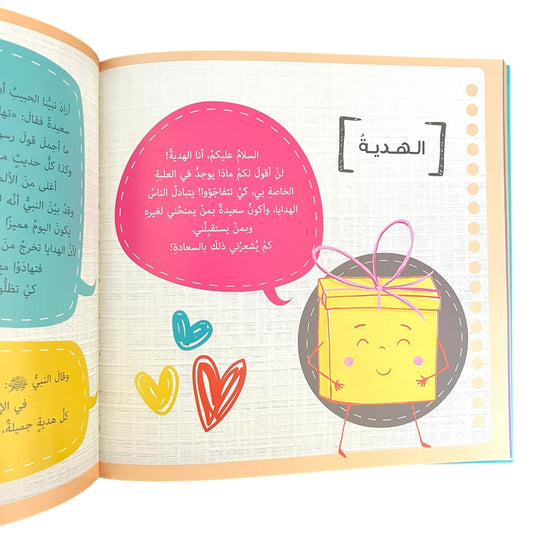 الهديةُ
السلامُ عليكمْ، أنا الهديةُ!
لنْ أقولَ لكمْ ماذا يوجدُ في العلبةِ
الخاصةِ بي، كيْ تتفاجَؤوا! يتبادلُ الناسُ
الهدايا، وأكونُ سعيدةً بمنْ يمنحُني لغيرِهِ
وبمنْ يستقبلُني.
كمْ يُشعِرُني ذلكَ بالسعادةِ!
أرادَ نبيُّنا الحبيبُ
سعيدةً فقالَ: «تها
ما أجملَ قولَ رسو
وكذا كلُّ حديثٍ م
أغلى منَ الألم
وقدْ بيَّنَ النبيُّ أنَّه ل
يكونَ اليومُ مميزًا
لأنَّ الهدايا تخرجُ منَ
فتهادَوْا مع
كيْ تظلُّو
وقالَ النبيُّ ﷺ:
في الإ
كلُّ هديةٍ جميلةٌ،